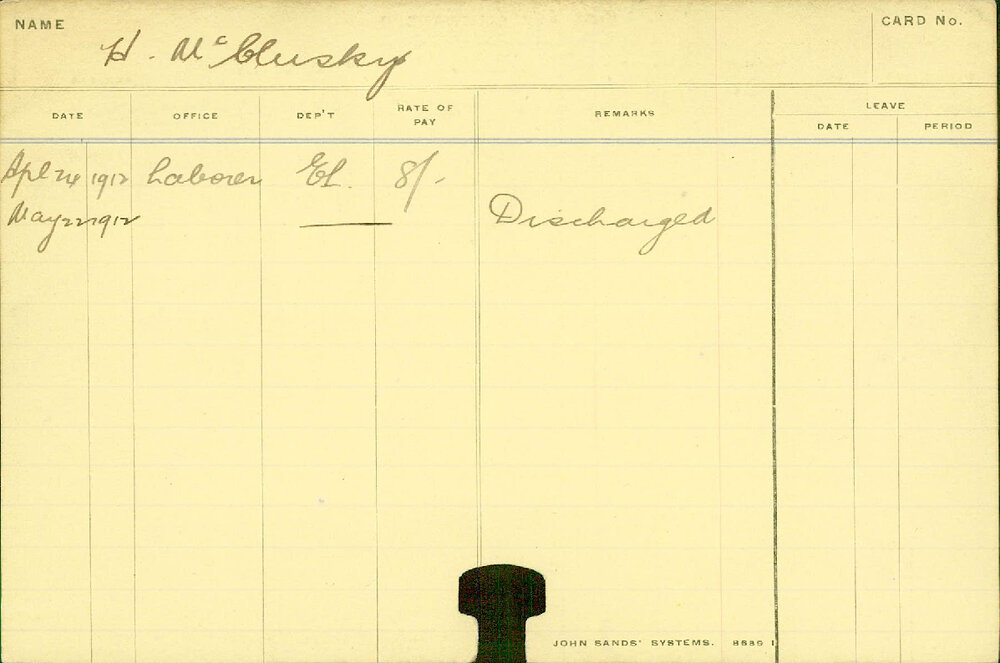 NAME H. McClusky CARD No.
DATE OFFICE DEP'T RATE OF PAY REMARKS LEAVE
DATE PERIOD
Apl 24 1912 Laborer El. 8/-
May 22 1912 Discharged
JOHN SANDS' SYSTEMS.